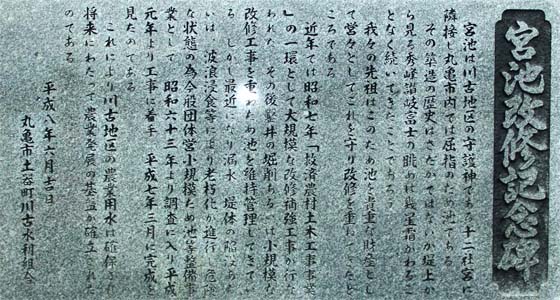 宮池改修記念碑
宮池は川古地区の守護神である十二社宮に
隣接し丸亀市内では屈指のため池である
その築造の歴史はさだかではないが堤上か
ら見る秀峰讃岐富士の眺めは幾星霜かわるこ
となく続いてきたことであろう
我々の先祖はこのため池を貴重な財産とし
て営々としてこれを守り改修を重ねてきたと
ころである
近年では昭和七年「救済農村土木工事事業
」の一環として大規模な改修補強工事が行な
われ その後竪井の堀削あるいは小規模な
改修工事を重ねため池を維持管理してきてい
る しかし最近 なり漏水 堤体の陥没ある
いは 波浪浸食等により老朽化が進行 危険
な状態の為今般団体営小規模ため池等整備事
業として 昭和六十三年より調査に入り平成
元年より工事に着手 平成七年三月に完成を
見たのである
これにより川古地区の農業用水は確保され
将来にわたって農業発展の基盤が確立された
のである
平成八年六月吉日
丸亀市土器町川古水利組合